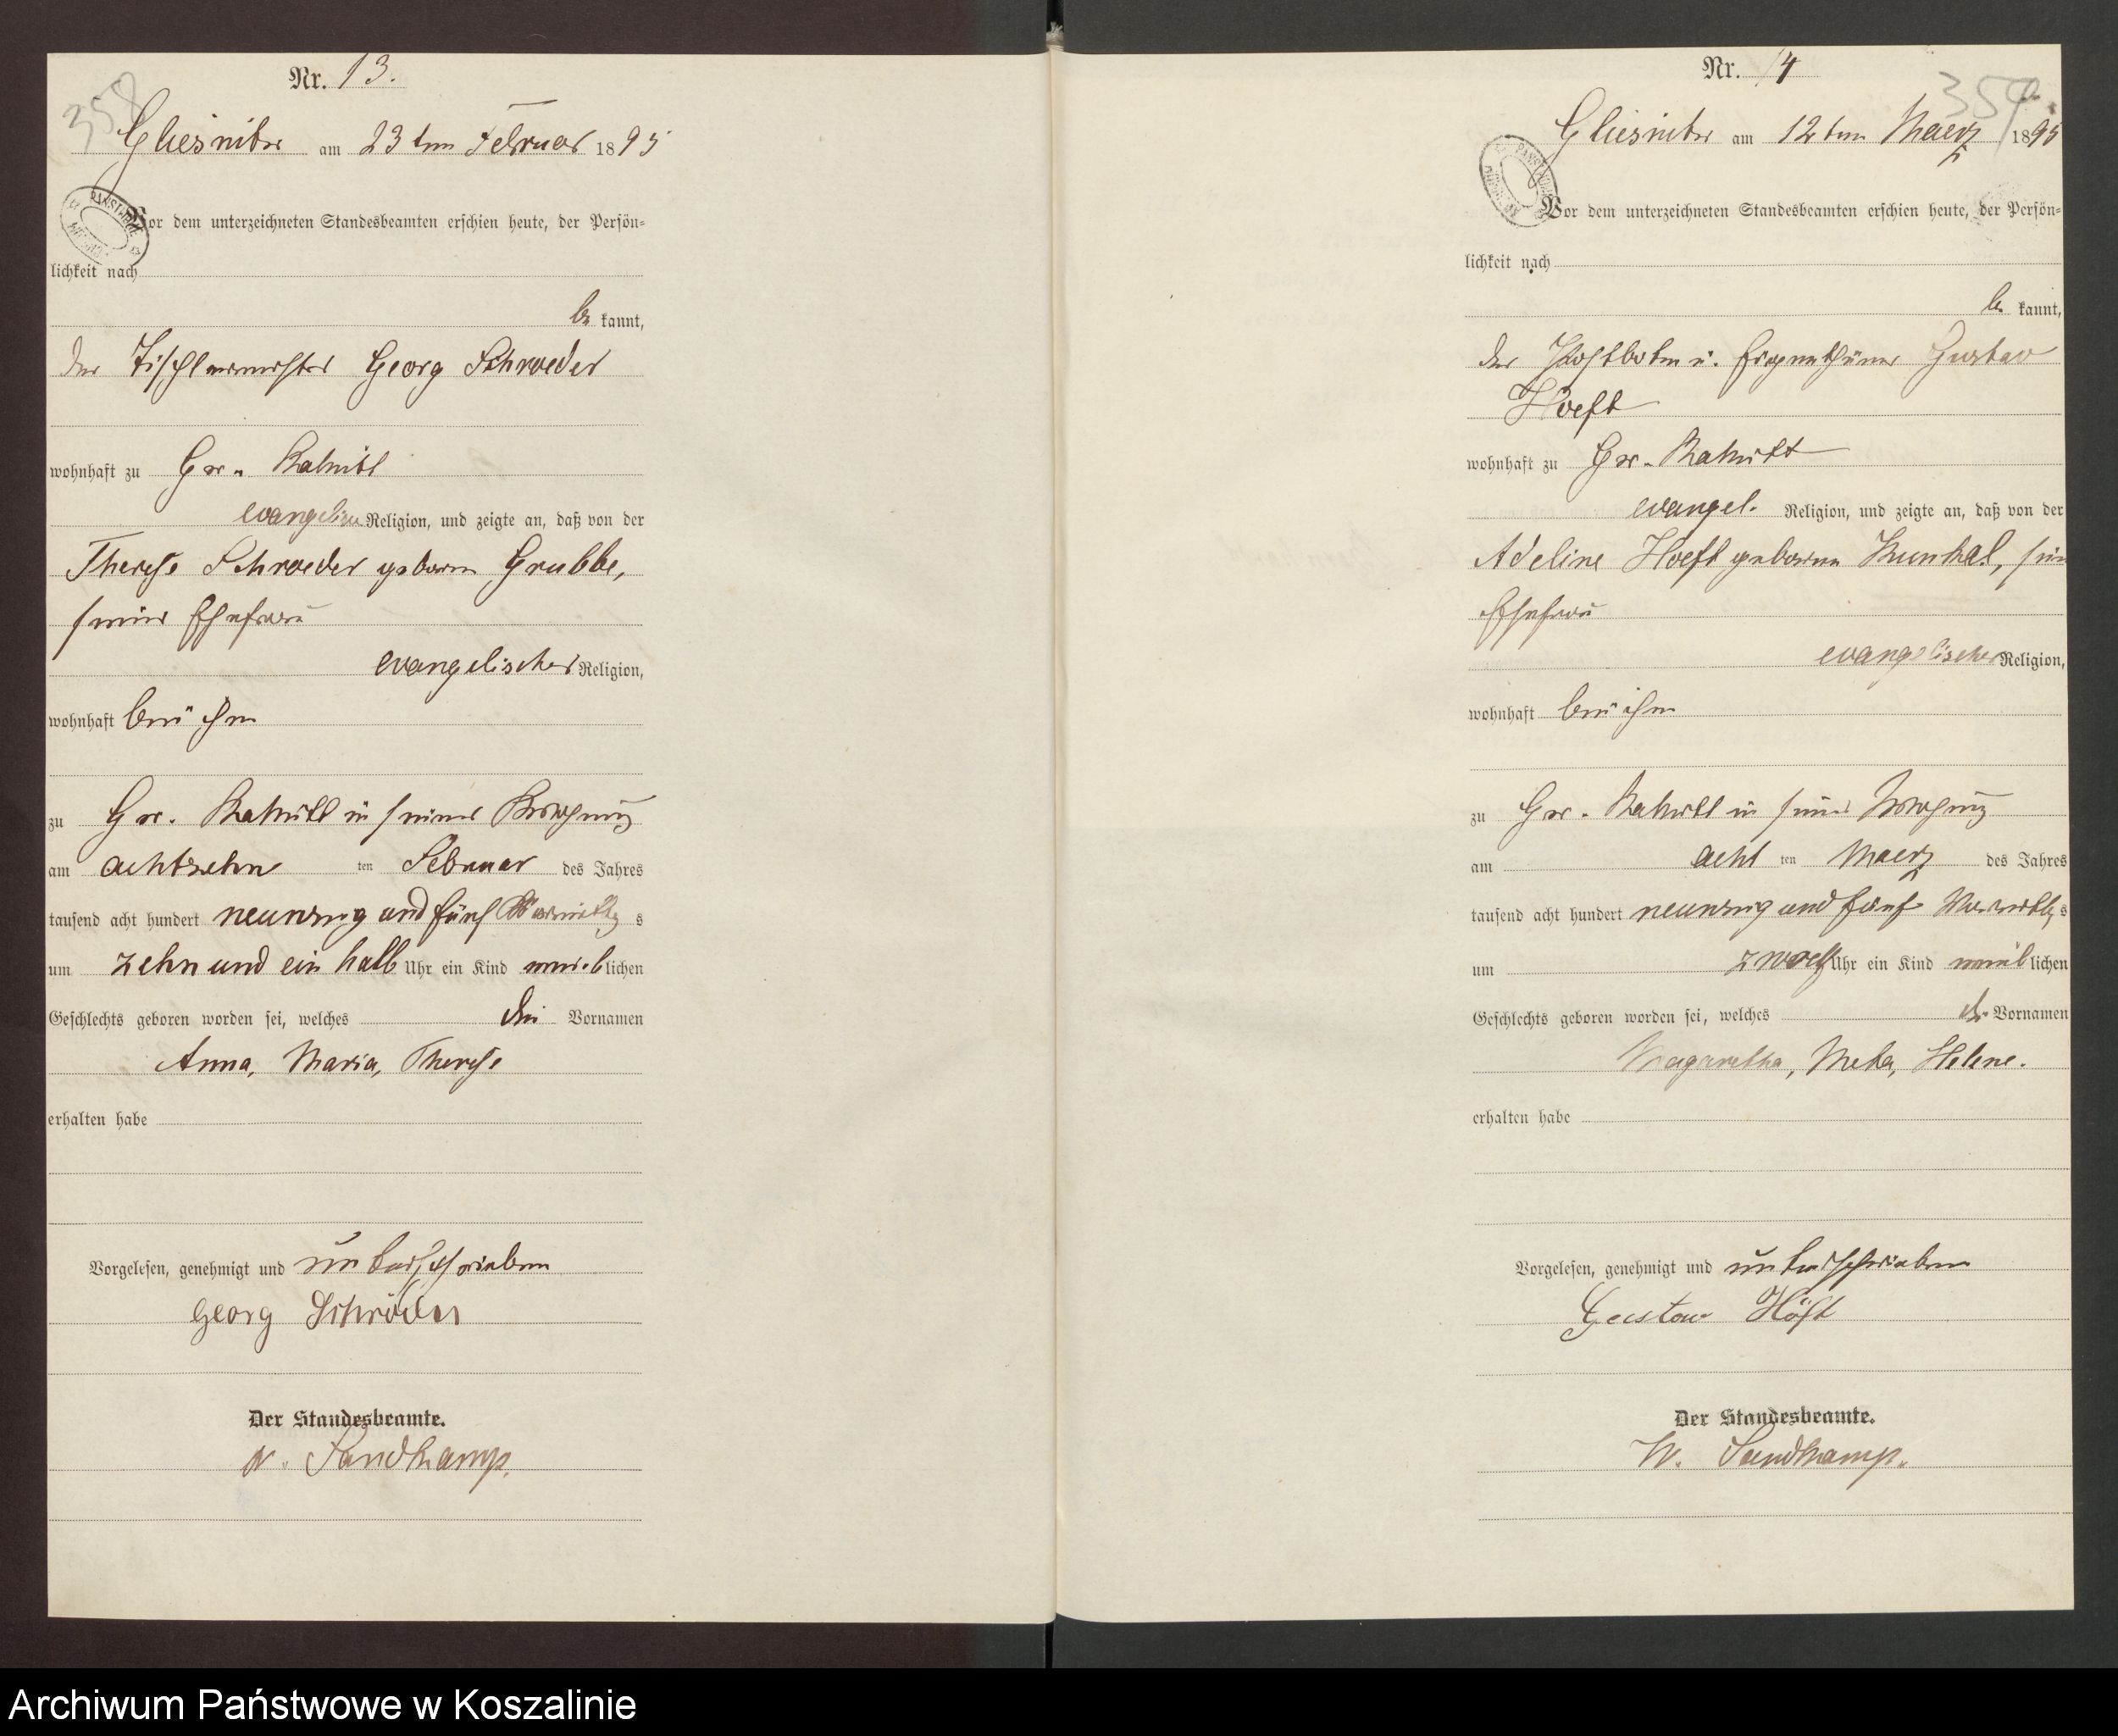 358
Nr. 13.
Gliesnitz am 23ten Februar 1895
Vor dem unterzeichneten Standesbeamten erschien heute, der Persön-
lichkeit nach
be kannt,
der Tischlermeister Georg Schroeder
wohnhaft zu Gr.
Religion, und zeigte an, daß von der
Therese Schroeder geborne Grubbe,
seiner Ehefrau
evangelischer Religion,
wohnhaft bei ihm
zu Gr. in seiner Wohnung
am achtzehn ten Februar des Jahres
tausend acht hundert neunzig und fünf Vormittag s
um zehn und ein halb Uhr ein Kind weib lichen
Geschlechts geboren worden sei, welches die Vornamen
Anna, Maria, Therese
erhalten habe
Vorgelesen, genehmigt und unterschrieben
Georg Schröder
Der Standesbeamte.
W. Sandkamp.
354
Nr. 14
Gliesnitz am 12ten Maerz 1895
Vor dem unterzeichneten Standesbeamten erschien heute, der Persön-
lichkeit nach
be kannt,
der Postbote u. Eigenthümer Gustav
Hoeft
wohnhaft zu Gr.
evangel. Religion, und zeigte an, daß von der
Adeline Hoeft geborne Kunkel, sein
Ehefrau
evangelischer Religion,
wohnhaft bei ihm
zu Gr. in seiner Wohnung
am acht ten Maerz des Jahres
tausend acht hundert neunzig und fünf Vormittag s
um zwoelf Uhr ein Kind weib lichen
Geschlechts geboren worden sei, welches die Vornamen
Magaretha, Meta, Helene.
erhalten habe
Vorgelesen, genehmigt und unterschrieben
Gustav Höft
Der Standesbeamte.
W. Sandkamp.
Archiwum Państwowe w Koszalinie